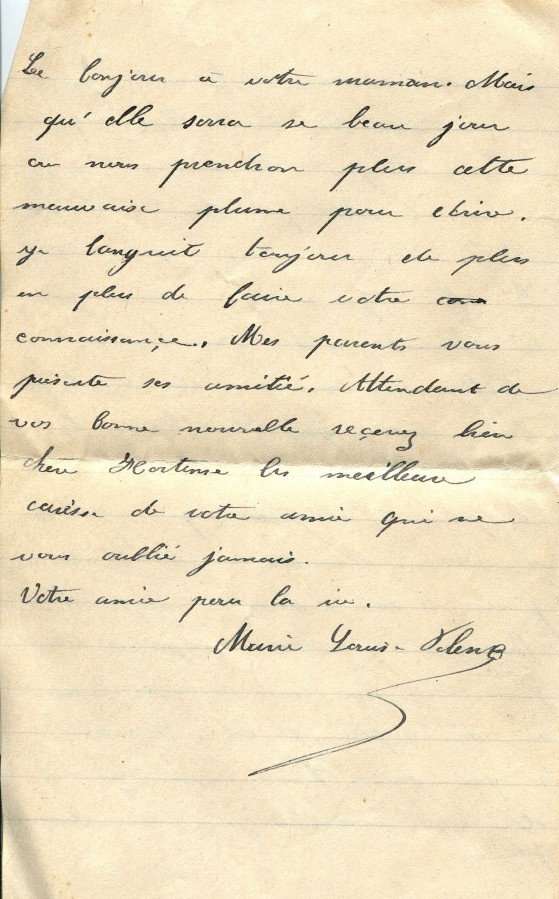 Le bonjour à votre maman. Mais
qu'elle serra se beau jour
ou nous prendron plus cette
mauvaise plume pour ecrire.
je languit toujour de plus
en plus de faire votre
connaissançe. Mes parents vous
présente ses amitié. Attendant de
vos bonne nouvelle reçevez bien
chère Hortense les meilleure
caresse de votre amie qui ne
vous oublié jamais.
Votre amie pour la vie.
Marie Louis